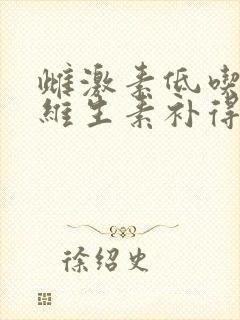 雌激素低喫
維生素补得
徐绍史